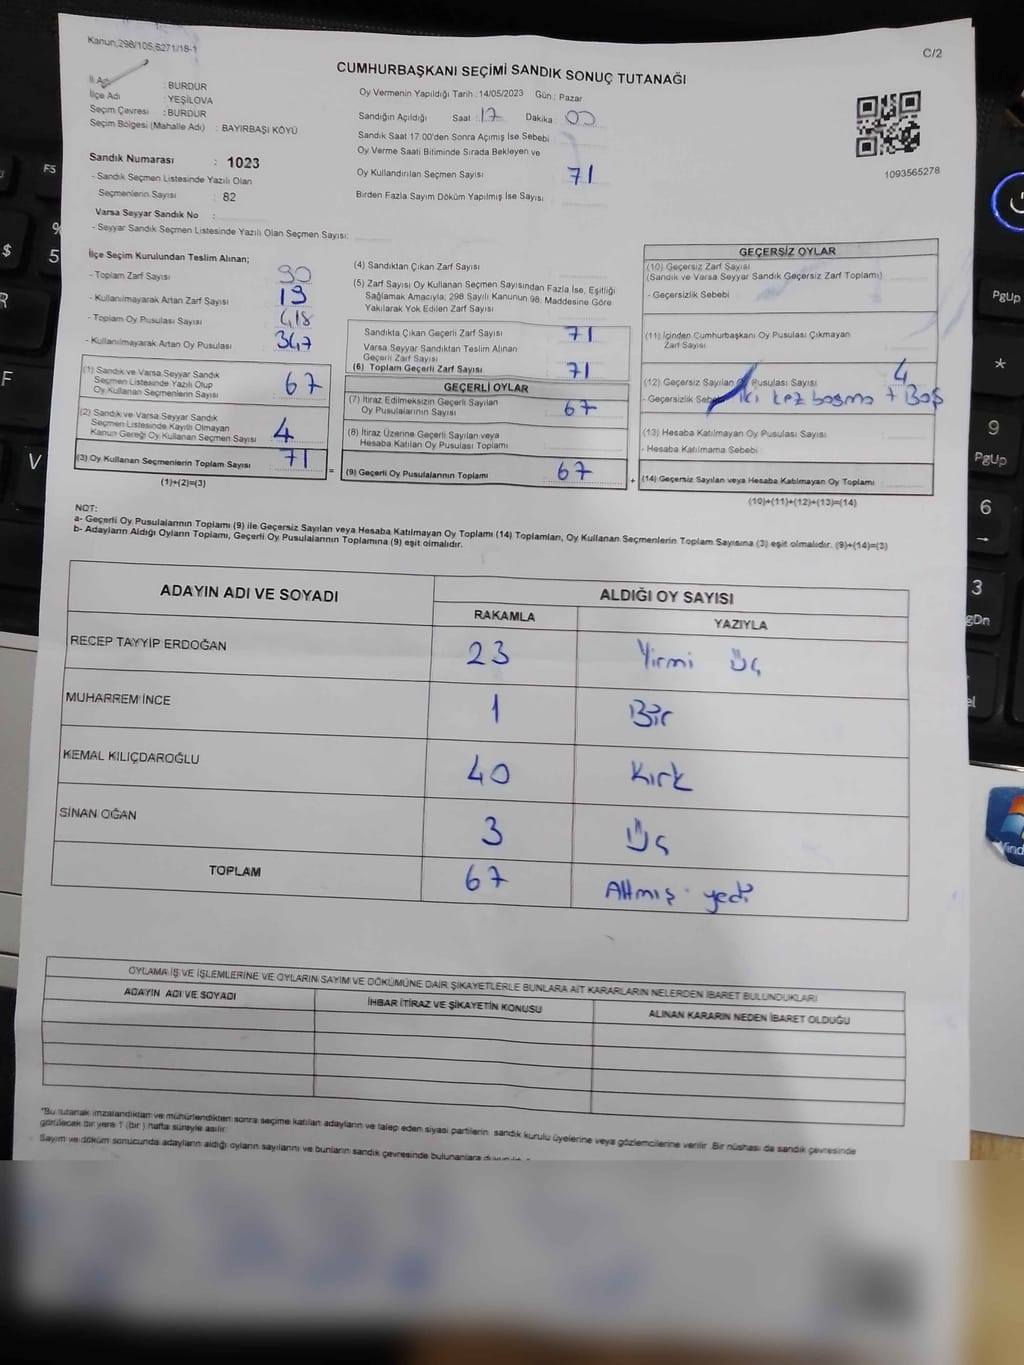 Kanun,298/105,6271/18-1
C/2
CUMHURBAŞKANI SEÇİMİ SANDIK SONUÇ TUTANAĞI
İl Adı : BURDUR
İlçe Adı : YEŞİLOVA
Seçim Çevresi : BURDUR
Seçim Bölgesi (Mahalle Adı) : BAYIRBAŞI KÖYÜ
Oy Vermenin Yapıldığı Tarih : 14/05/2023 Gün : Pazar
Sandığın Açıldığı Saat : 17 Dakika : 00
Sandık Saat 17:00'den Sonra Açımış İse Sebebi
Oy Verme Saati Bitiminde Sırada Bekleyen ve
Oy Kullandırılan Seçmen Sayısı 71
Birden Fazla Sayım Döküm Yapılmış İse Sayısı
1093565278
Sandık Numarası : 1023
- Sandık Seçmen Listesinde Yazılı Olan
Seçmenlerin Sayısı : 82
Varsa Seyyar Sandık No :
- Seyyar Sandık Seçmen Listesinde Yazılı Olan Seçmen Sayısı:
İlçe Seçim Kurulundan Teslim Alınan;
- Toplam Zarf Sayısı 90
- Kullanılmayarak Artan Zarf Sayısı 19
- Toplam Oy Pusulası Sayısı 418
- Kullanılmayarak Artan Oy Pusulası 347
(1) Sandık ve Varsa Seyyar Sandık
Seçmen Listesinde Yazılı Olup
Oy Kullanan Seçmenlerin Sayısı 67
(2) Sandık ve Varsa Seyyar Sandık
Seçmen Listesinde Kayıtlı Olmayan
Kanun Gereği Oy Kullanan Seçmen Sayısı 4
(3) Oy Kullanan Seçmenlerin Toplam Sayısı 71
(1)+(2)=(3)
=
(4) Sandıktan Çıkan Zarf Sayısı
(5) Zarf Sayısı Oy Kullanan Seçmen Sayısından Fazla İse, Eşitliği
Sağlamak Amacıyla; 298 Sayılı Kanunun 98. Maddesine Göre
Yakılarak Yok Edilen Zarf Sayısı
Sandıkta Çıkan Geçerli Zarf Sayısı 71
Varsa Seyyar Sandıktan Teslim Alınan
Geçerli Zarf Sayısı
(6) Toplam Geçerli Zarf Sayısı 71
GEÇERLİ OYLAR
(7) İtiraz Edilmeksizin Geçerli Sayılan
Oy Pusulalarının Sayısı 67
(8) İtiraz Üzerine Geçerli Sayılan veya
Hesaba Katılan Oy Pusulası Toplamı
(9) Geçerli Oy Pusulalarının Toplamı 67
+
GEÇERSİZ OYLAR
(10) Geçersiz Zarf Sayısı
(Sandık ve Varsa Seyyar Sandık Geçersiz Zarf Toplamı)
- Geçersizlik Sebebi
(11) İçinden Cumhurbaşkanı Oy Pusulası Çıkmayan
Zarf Sayısı
(12) Geçersiz Sayılan Pusulası Sayısı 4
- Geçersizlik iki kez basma + Boş
(13) Hesaba Katılmayan Oy Pusulası Sayısı
- Hesaba Katılmama Sebebi
(14) Geçersiz Sayılan veya Hesaba Katılmayan Oy Toplamı
(10)+(11)+(12)+(13)=(14)
NOT:
a- Geçerli Oy Pusulalarının Toplamı (9) ile Geçersiz Sayılan veya Hesaba Katılmayan Oy Toplamı (14) Toplamları, Oy Kullanan Seçmenlerin Toplam Sayısına (3) eşit olmalıdır. (9)+(14)=(3)
b- Adayların Aldığı Oyların Toplamı, Geçerli Oy Pusulalarının Toplamına (9) eşit olmalıdır.
ADAYIN ADI VE SOYADI ALDIĞI OY SAYISI
RAKAMLA YAZIYLA
RECEP TAYYİP ERDOĞAN 23 Yirmi Üç
MUHARREM İNCE 1 Bir
KEMAL KILIÇDAROĞLU 40 Kırk
SİNAN OĞAN 3 Üç
TOPLAM 67 Altmış yedi
OYLAMA İŞ VE İŞLEMLERİNE VE OYLARIN SAYIM VE DÖKÜMÜNE DAİR ŞİKAYETLERLE BUNLARA AİT KARARLARIN NELERDEN İBARET BULUNDUKLARI
ADAYIN ADI VE SOYADI İHBAR İTİRAZ VE ŞİKAYETİN KONUSU ALINAN KARARIN NEDEN İBARET OLDUĞU
*Bu tutanak imzalandıktan ve mühürlendikten sonra seçime katılan adayların ve talep eden siyasi partilerin sandık kurulu üyelerine veya gözlemcilerine verilir. Bir nüshası da sandık çevresinde
görülecek bir yere 1 (bir) hafta süreyle asılır.
Sayım ve döküm sonucunda adayların aldığı oyların sayılarını ve bunların sandık çevresinde bulunanlara
F5
%
5
$
R
F
V
PgUp
*
9
PgUp
6
→
3
gDn